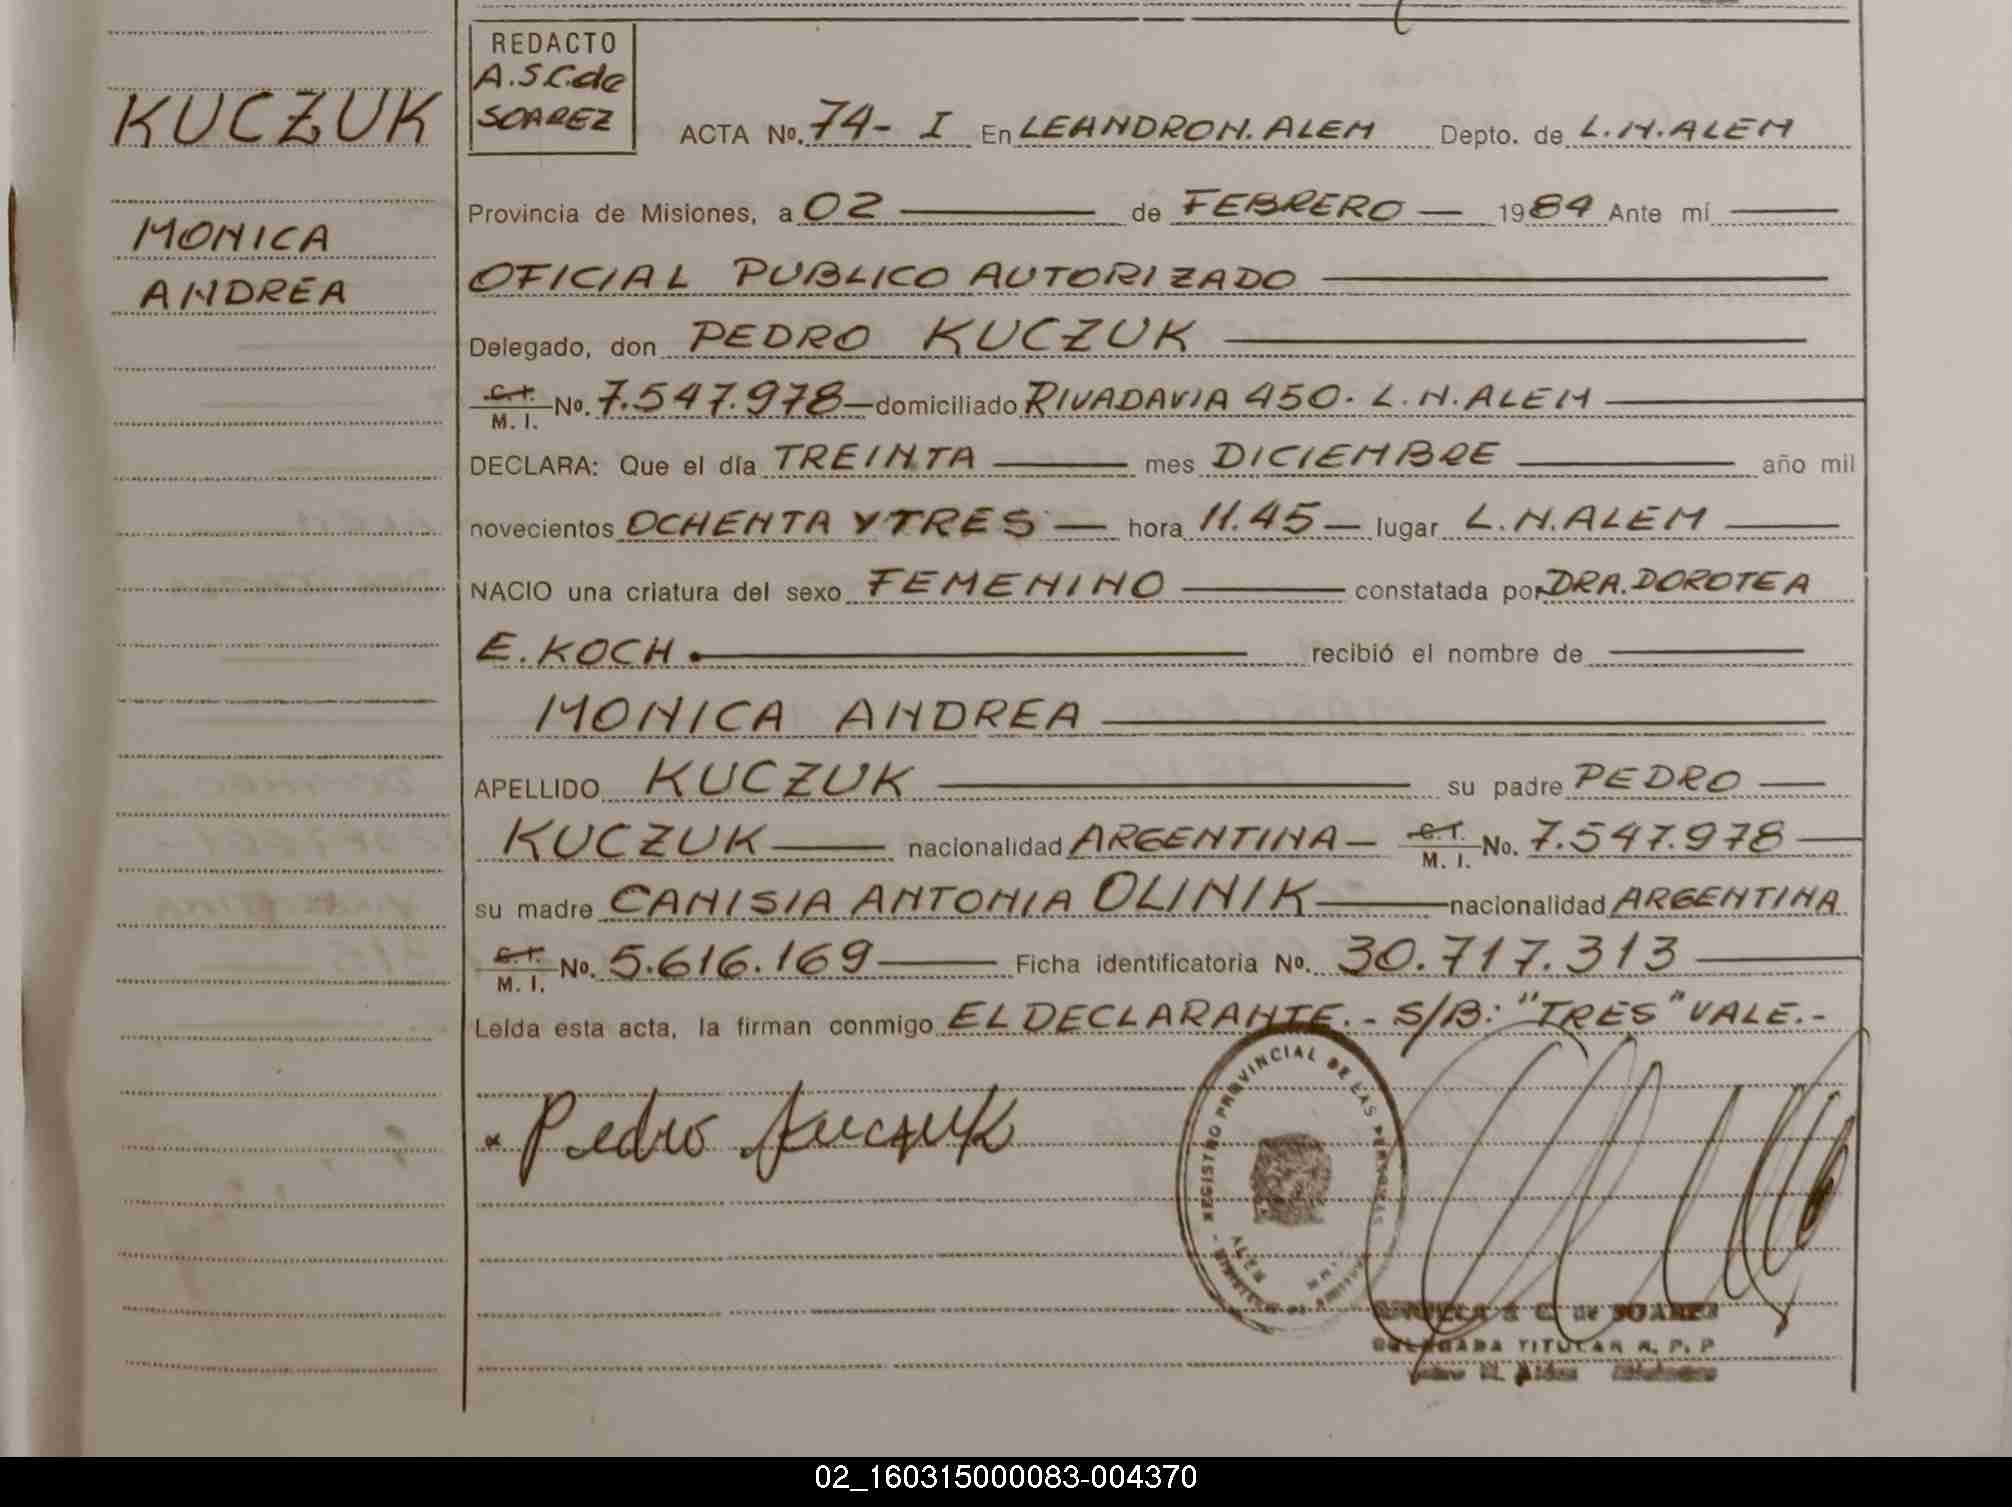 KUCZUK
MONICA
ANDREA
REDACTO
A.S.C.de
SOAREZ
ACTA No. 74- I En LEANDRO N. ALEM Depto. de L.N.ALEM
Provincia de Misiones, a 02 — de FEBRERO — 1984 Ante mí —
OFICIAL PUBLICO AUTORIZADO —
Delegado, don PEDRO KUCZUK —
C.I. M. I. No. 7.547.978 — domiciliado RIVADAVIA 450. L.N.ALEM —
DECLARA: Que el día TREINTA — mes DICIEMBRE — año mil
novecientos OCHENTA Y TRES — hora 11.45 — lugar L.N.ALEM —
NACIO una criatura del sexo FEMENINO — constatada por DRA. DOROTEA
E. KOCH. — recibió el nombre de —
MONICA ANDREA —
APELLIDO KUCZUK — su padre PEDRO —
KUCZUK — nacionalidad ARGENTINA — C.I. M. I. No. 7.547.978 —
su madre CANISIA ANTONIA OLINIK — nacionalidad ARGENTINA
C.I. M. I. No. 5.616.169 — Ficha identificatoria No. 30.717.313 —
Leída esta acta, la firman conmigo EL DECLARANTE. - S/B: "TRES" VALE.-
Pedro Kuczuk
REGISTRO PROVINCIAL DE LAS PERSONAS
S. C. de SUAREZ
DELEGADA TITULAR R. P. P
02_160315000083-004370